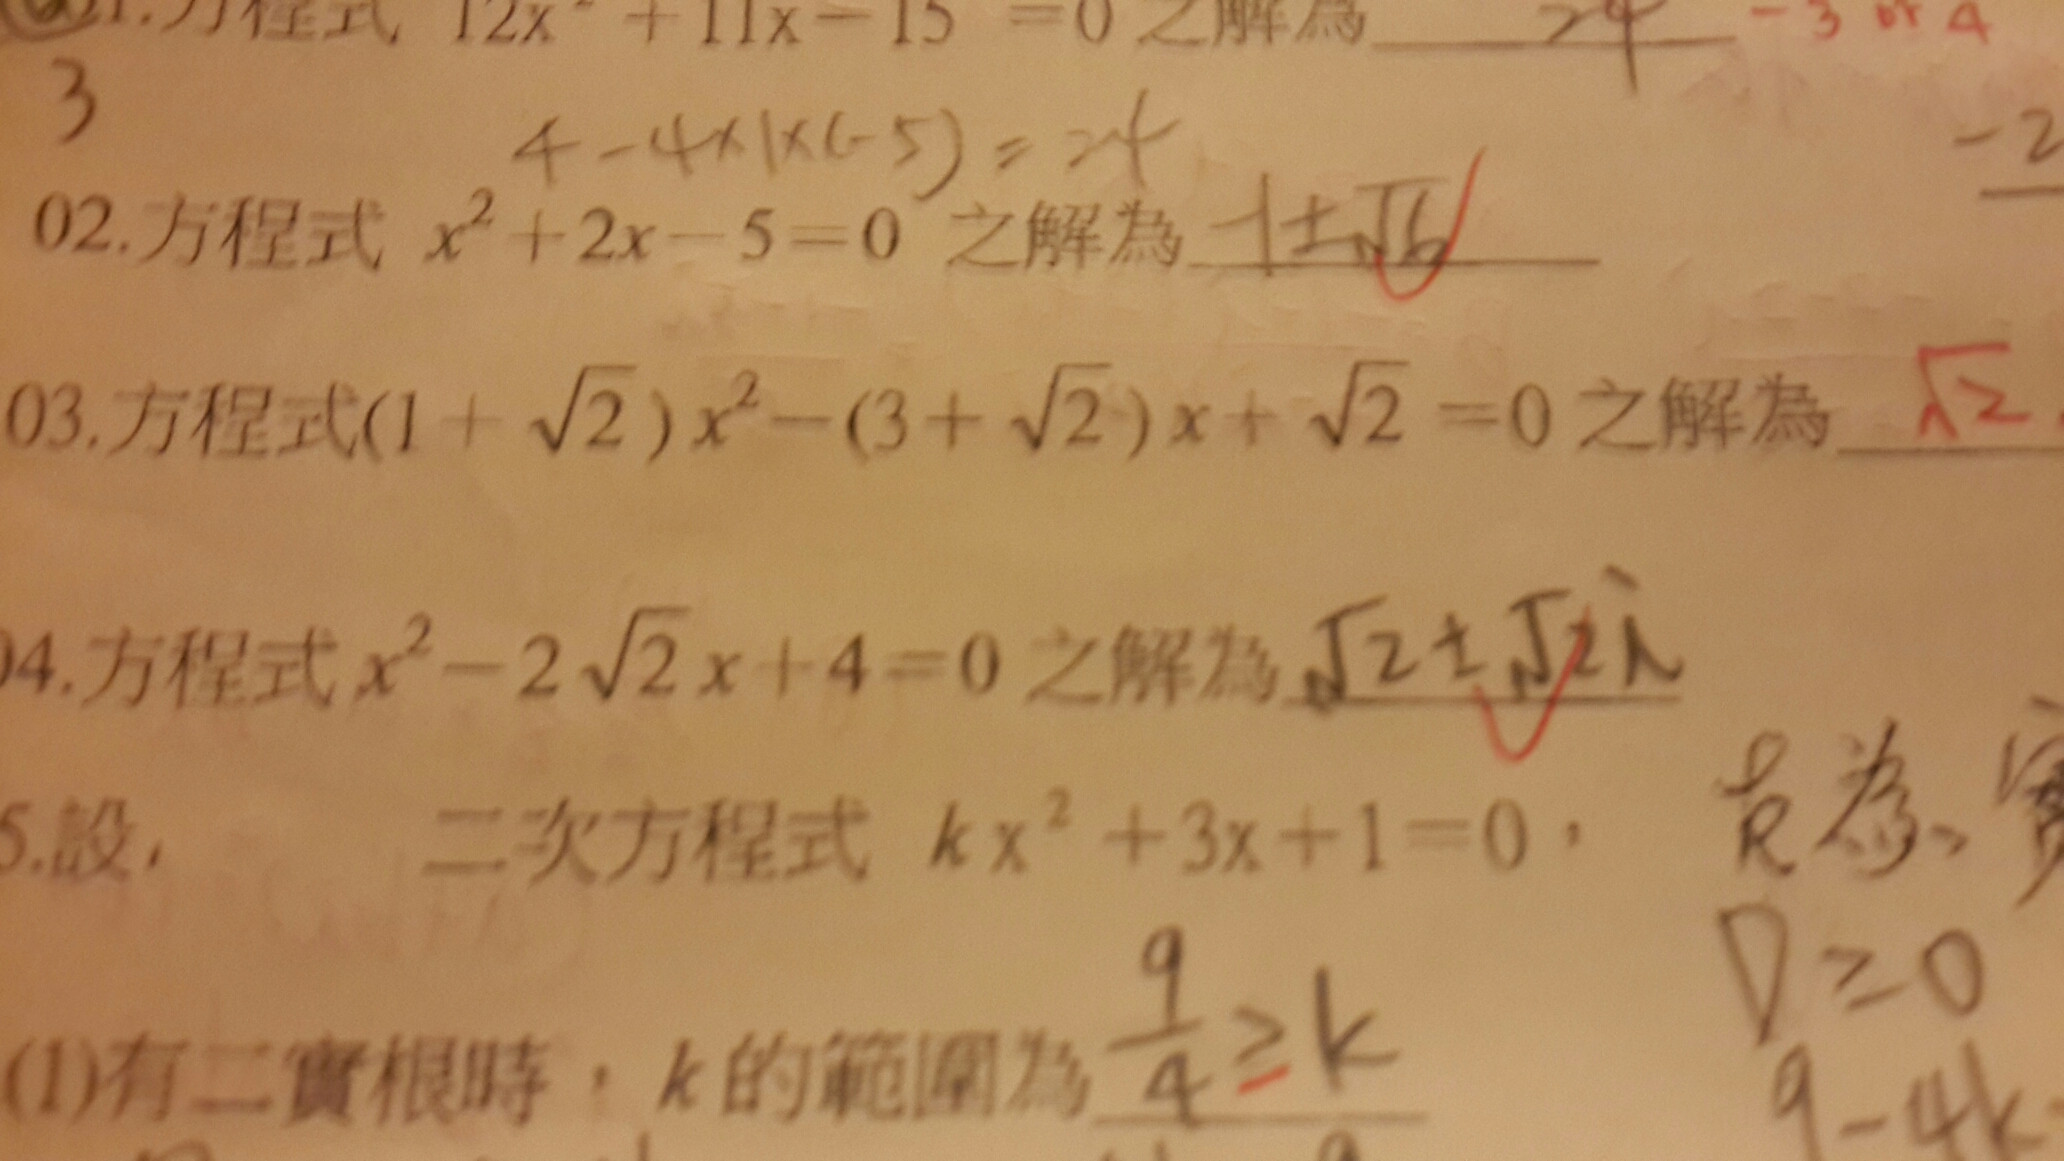 01.方程式 12x² +11x−15 =0 之解為 24 -3 or 4
3
4-4×1×(-5)=24
-2
02.方程式 x²+2x−5=0 之解為 -1±√6
03.方程式(1+√2)x²−(3+√2)x+√2=0 之解為 √2
04.方程式 x²−2√2x+4=0 之解為 √2±√2i
5.設, 二次方程式 kx²+3x+1=0,
k為
D≥0
(1)有二實根時,k的範圍為 9/4≥k
9-4k